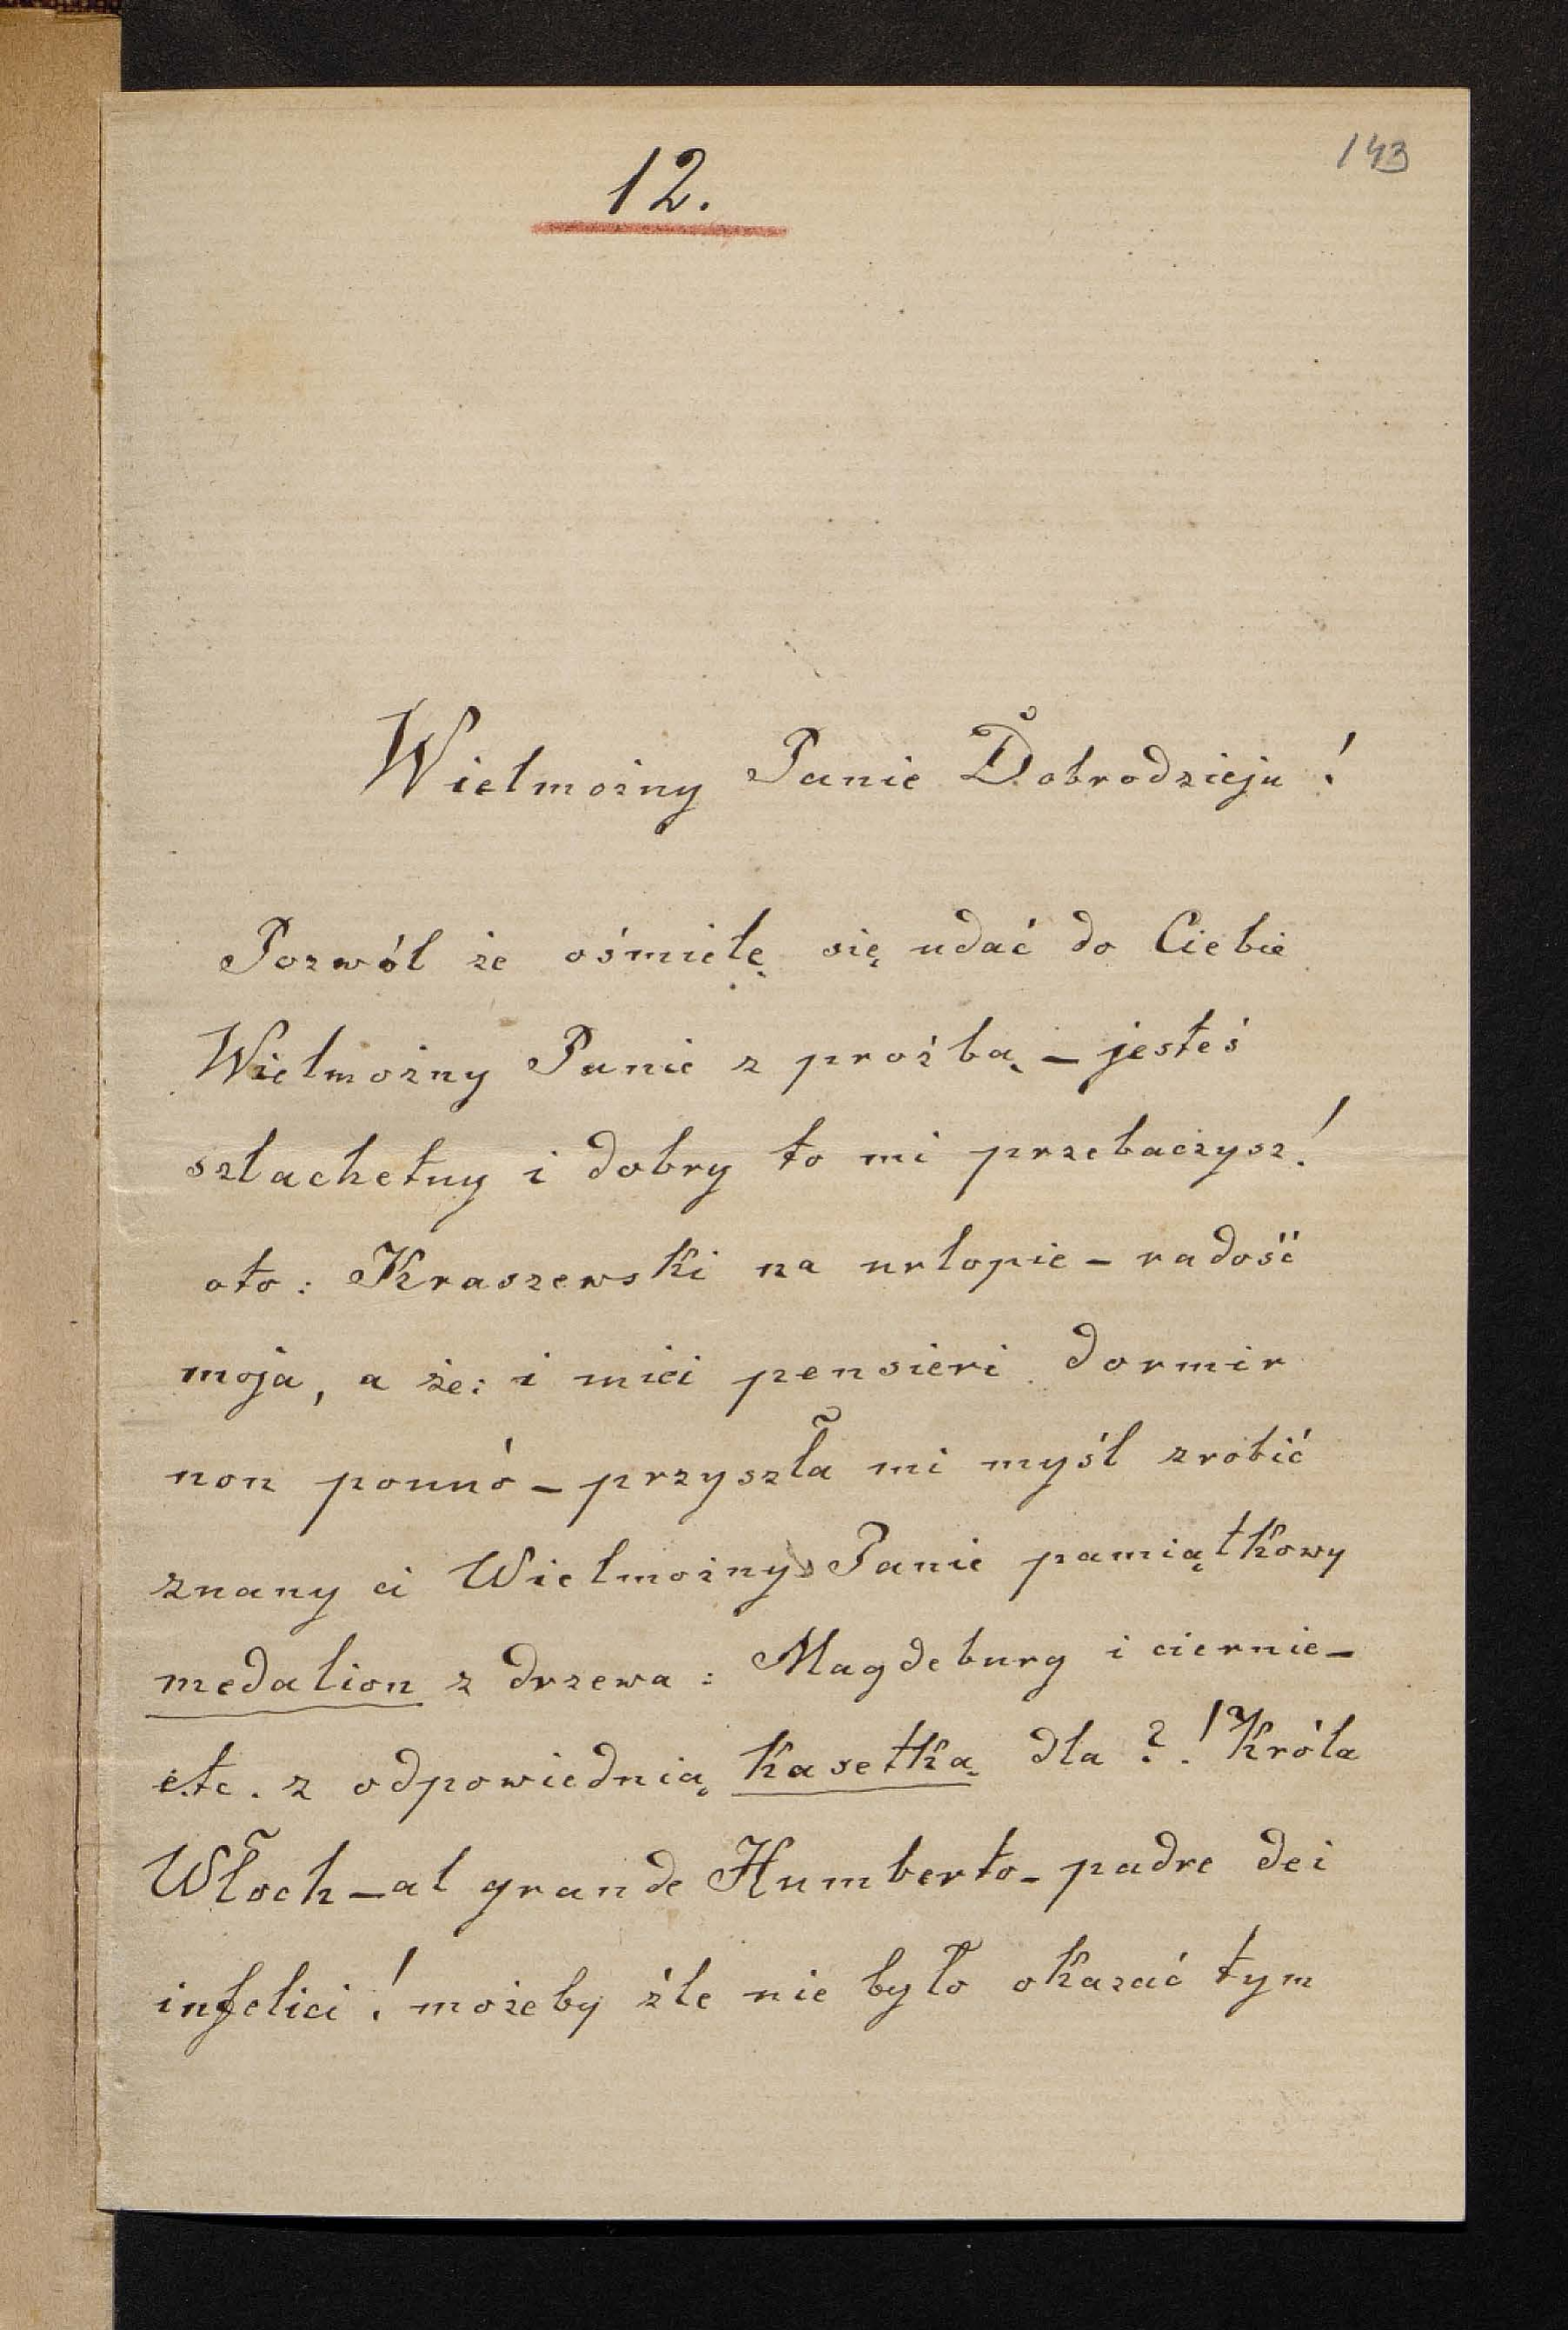 143
12.
Wielmożny Panie Dobrodzieju!
Pozwól że ośmielę się udać do Ciebie
Wielmożny Panie z prośbą – jesteś
szlachetny i dobry to mi przebaczysz!
oto: Kraszewski na urlopie – radość
moja, a że: i miei pensieri dormir
non ponnó – przyszła mi myśl zrobić
znany ci Wielmożny Panie pamiątkowy
medalion z drzewa: Magdeburg i ciernie –
etc. z odpowiednią kasetką dla ?! Króla
Włoch – al grande Humberto – padre dei
infelici! możeby źle nie było okazać tym